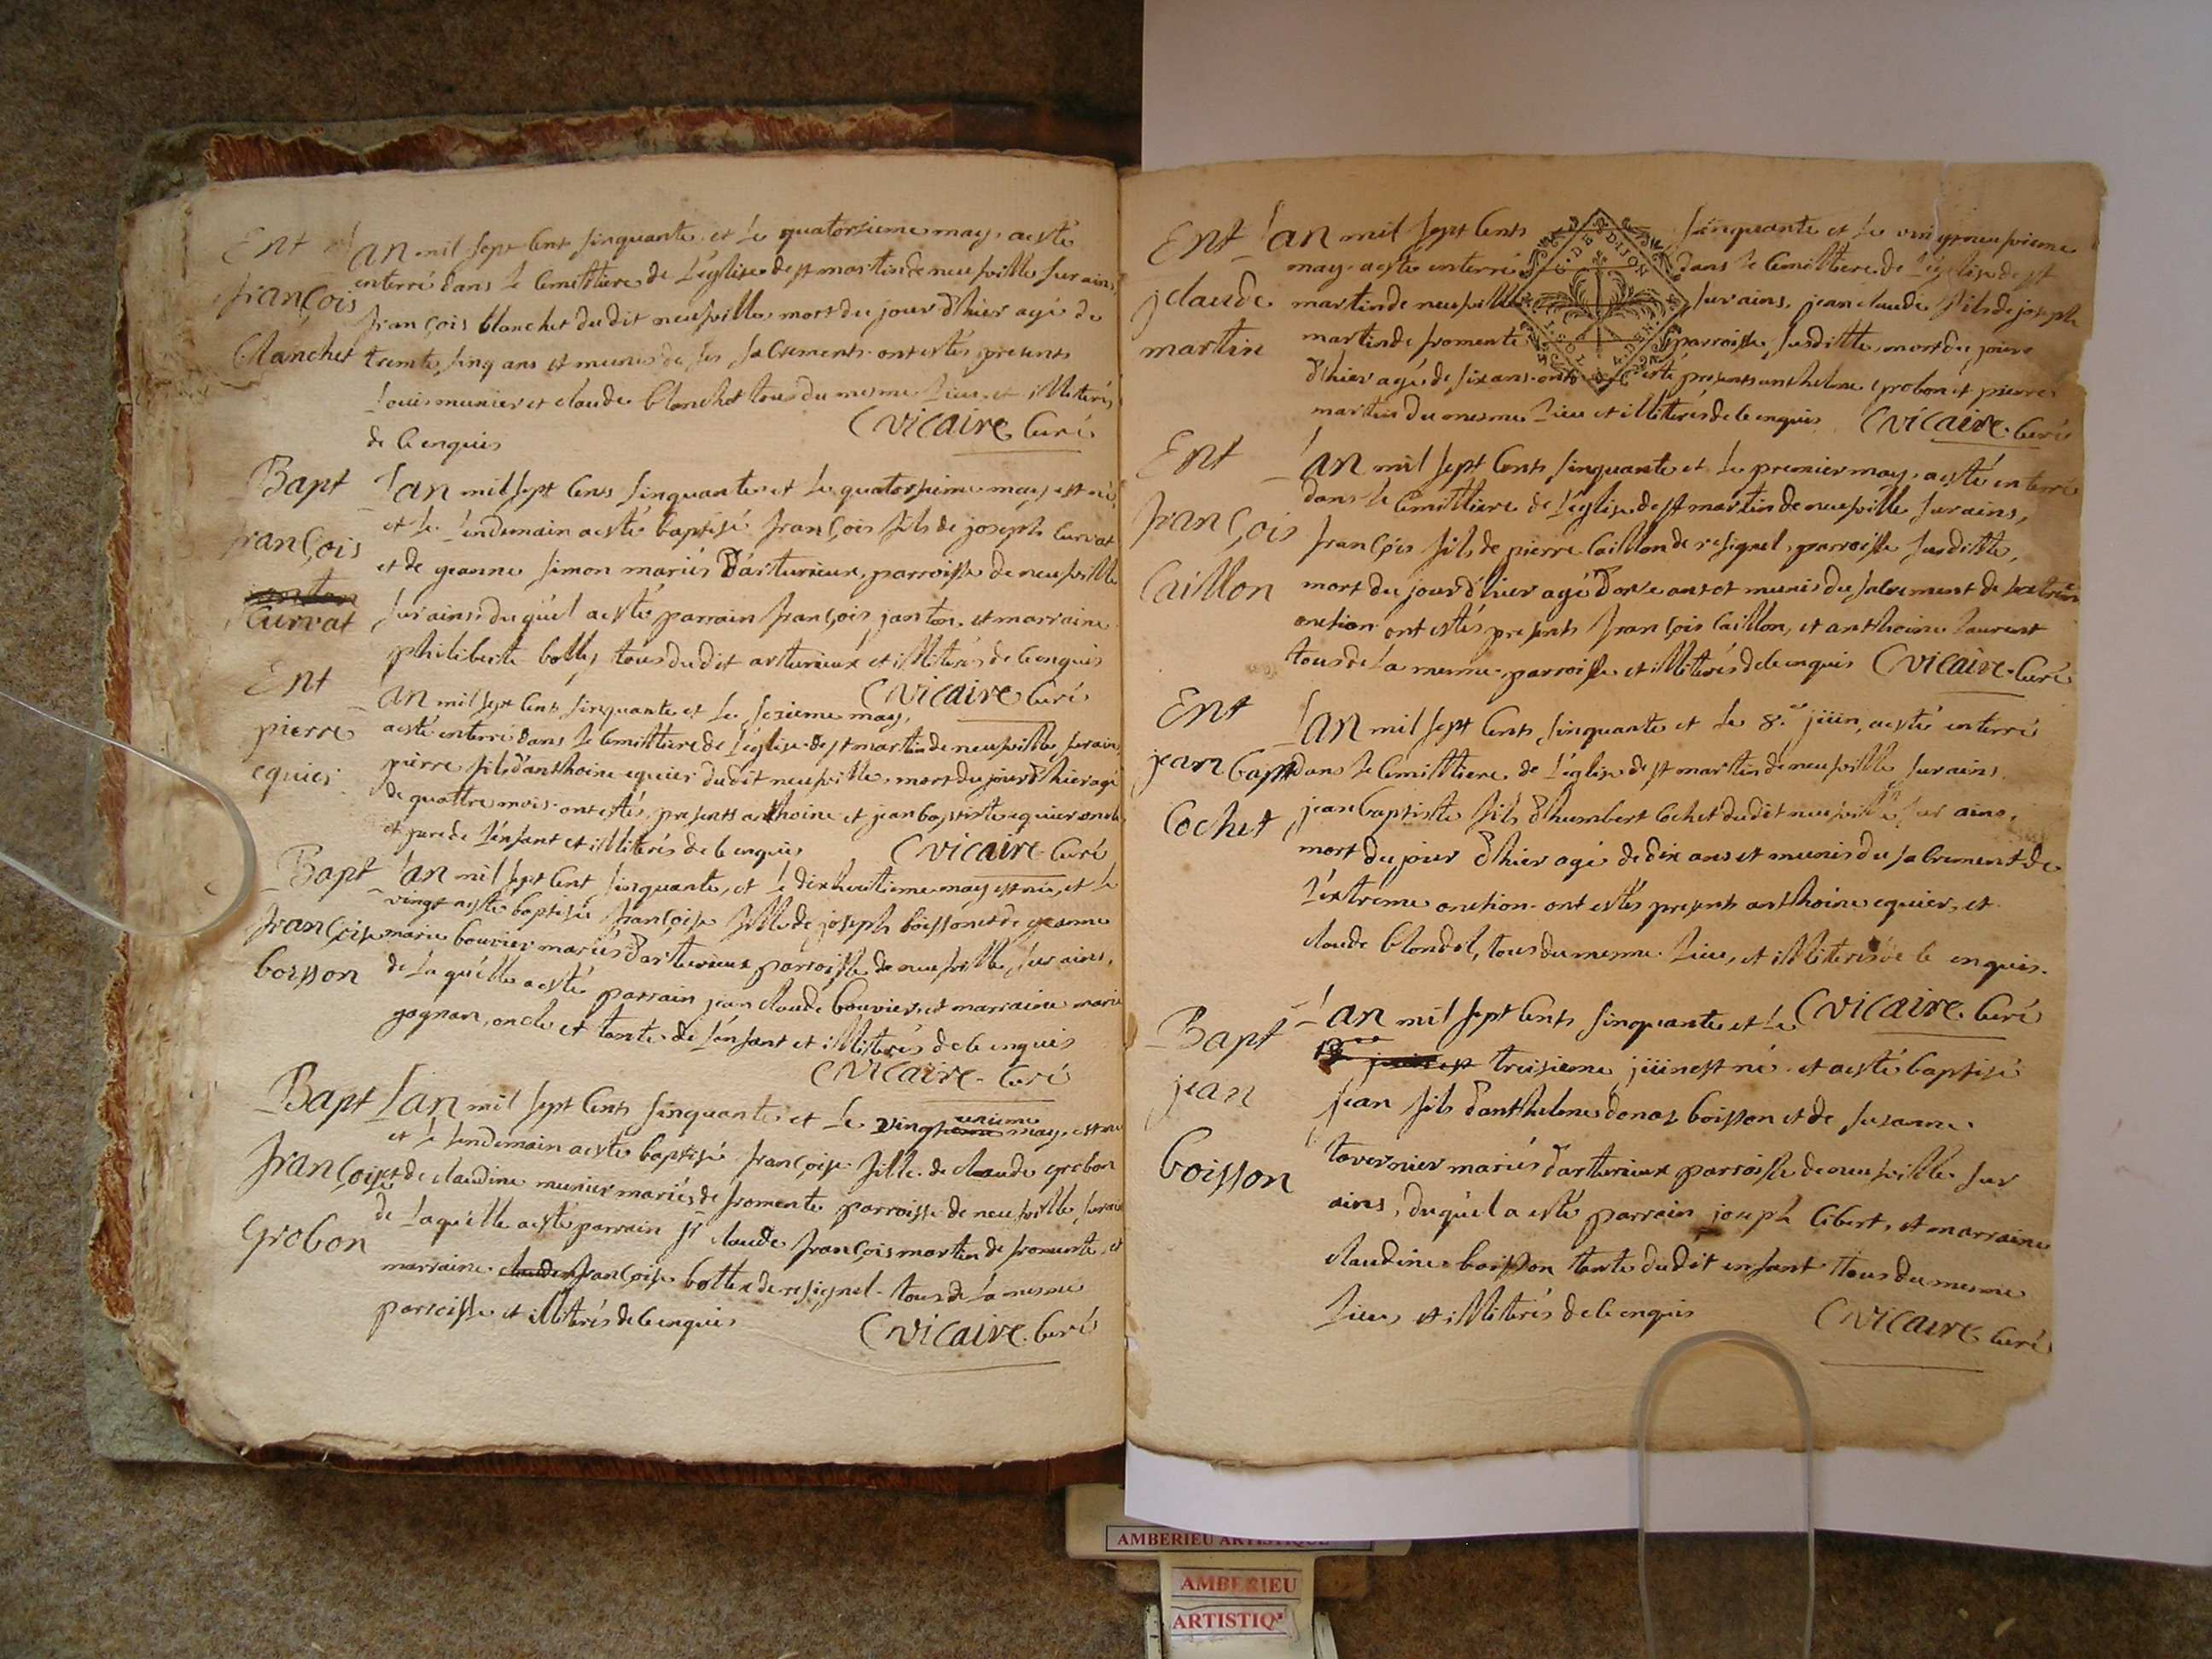 Ent
françois
blanchet
L'an mil sept cent sinquante et le quatorsieme may a esté
enterré dans le cemittiere de l'église de st martin de neufville sur ains,
françois blanchet du dit neufville mort du jour d'hier agé de
trente sinq ans et munis de ses sacrements ont estés presents
louis munier et claude blanchet tous du mesme lieu et illiterés
de ce enquis
C vicaire Curé
Bapt
françois
Curvat
L'an mil sept cens sinquante et le quatorsieme may est né
et le lendemain a esté baptisé françois fils de joseph Curvat
et de jeanne simon mariés d'arturieux, parroisse de neufville
sur ains, du quel a esté parrain françois janton, et marraine
philiberte bolle, tous du dit arturieux et illiterés de ce enquis
C vicaire Curé
Ent
pierre
equier
L'an mil sept cent sinquante et le sezieme may,
a esté enterré dans le cemittiere de l'église de st martin de neufville sur ains
pierre fils d'anthoine equier du dit neufville mort du jour d'hier agé
de quattre mois ont estés presents anthoine et jean baptiste equier oncle
et pere de l'enfant et illiterés de ce enquis
C vicaire Curé
Bapt
françoise
boisson
L'an mil sept cent sinquante, et le dixhuitieme may est née, et le
vingt a esté baptisée françoise fille de joseph boisson et de jeanne
marie bouvier mariés d'arturieux parroisse de neufville sur ains,
de la quelle a esté parrain jean claude bouvier, et marraine marie
gagnan, oncle et tante de l'enfant et illiterés de ce enquis
C vicaire Curé
Bapt
françoise
Grobon
L'an mil sept cents sinquante et le vingt unieme may, est née
et le lendemain a esté baptisée françoise fille de claude grobon
et de claudine munier mariés de fromente parroisse de neufville sur ains
de laquelle a esté parrain st claude françois martin de fromente, et
marraine françoise bottex de resignel tous de la mesme
parroisse et illiterés de ce enquis
C vicaire Curé
G. DE DIJON
Ent
j claude
martin
L'an mil sept cents sinquante et le vingt neufvieme
may a esté enterré dans le cemittiere de l'église de st
martin de neufville sur ains, jean claude fils de joseph
martin de fromente parroisse susditte, mort du jour
d'hier agé de six ans ont esté presents anthelme grobon et pierre
martin du mesme lieu et illiterés de ce enquis
C vicaire Curé
Ent
françois
Caillon
L'an mil sept cents sinquante et le premier may, a esté enterré
dans le cemittiere de l'église de st martin de neufville sur ains,
françois fils de pierre Caillon de resignel, parroisse susditte,
mort du jour d'hier agé d'onze ans et munis du sacrement de l'extreme
onction ont estés presents françois Caillon, et anthoine laurent
tous de la mesme parroisse et illiterés de ce enquis
C vicaire Curé
Ent
jean bapt
Cochet
L'an mil sept cents sinquante et le 8.e juin, a esté enterré
dans le cemittiere de l'église de st martin de neufville sur ains
jean baptiste fils d'humbert Cochet du dit neufville sur ains,
mort du jour d'hier agé de dix ans et munis du sacrement de
l'extreme onction ont estés presents anthoine equier, et
claude blondel, tous du mesme lieu, et illiterés de ce enquis.
C vicaire Curé
Bapt
jean
boisson
L'an mil sept cents sinquante et le
treisieme juin est né et a esté baptisé
jean fils d'anthelme donaz boisson et de susanne
tavernier mariés d'arturieux parroisse de neufville sur
ains, duquel a esté parrain joseph Cibert, et marraine
claudine boisson tante du dit enfant tous du mesme
lieu et illiterés de ce enquis
C vicaire Curé
AMBERIEU ARTISTIQUE
AMBERIEU
ARTISTIQ